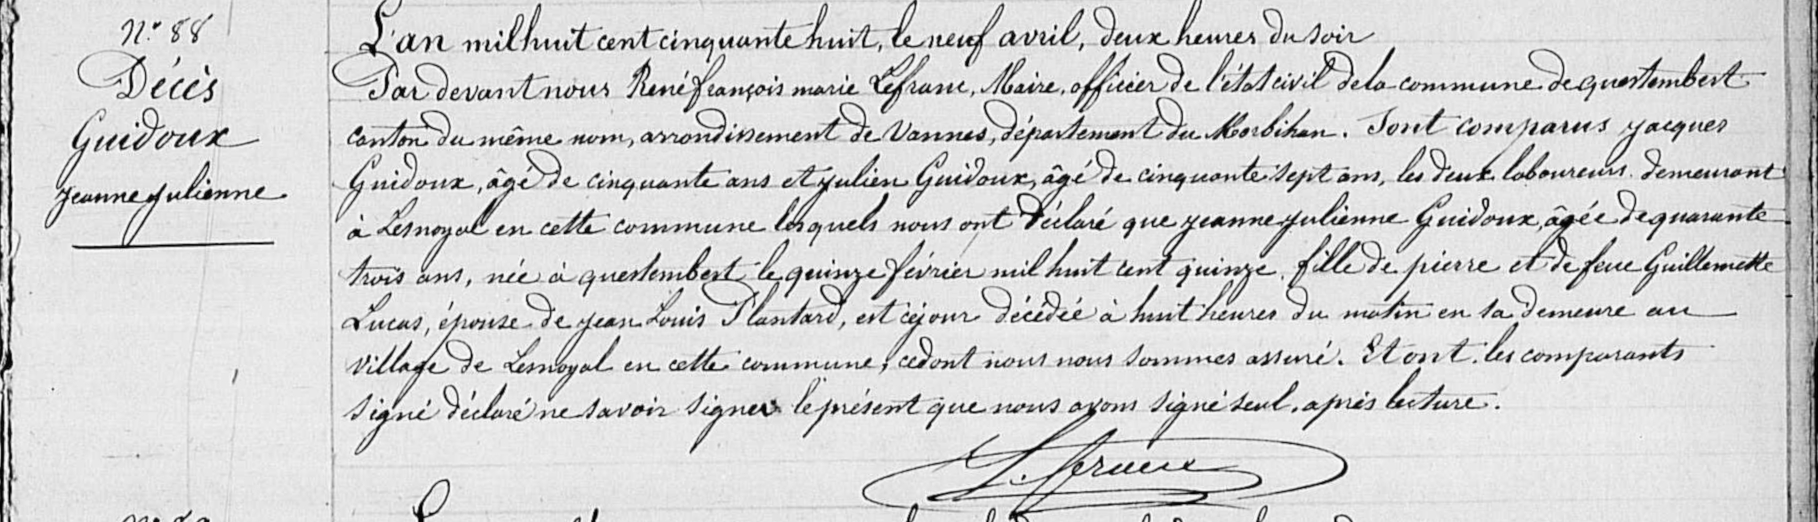 N.° 88
Décès
Guidoux
jeanne julienne
L'an mil huit cent cinquante huit, le neuf avril, deux heures du soir
Par devant nous René françois marie Lefranc, Maire, officier de l'état civil de la commune de questembert
canton du même nom, arrondissement de Vannes, département du Morbihan. Sont comparus jacques
Guidoux, âgé de cinquante ans et julien Guidoux, âgé de cinquante sept ans, les deux laboureurs demeurant
à Lesnoyal en cette commune lesquels nous ont déclaré que jeanne julienne Guidoux, âgée de quarante
trois ans, née à questembert le quinze février mil huit cent quinze, fille de pierre et de feue Guillemette
Lucas, épouse de jean Louis Plantard, est cejour décédée à huit heures du matin en sa demeure au
village de Lesnoyal en cette commune, cedont nous nous sommes assuré. Et ont les comparants
signé déclaré ne savoir signer le présent que nous avons signé seul, après lecture.
Lefranc